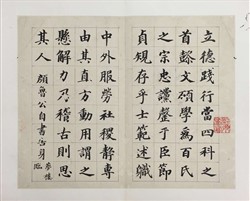 立德踐行當四科之
首懿文碩學為百氏
之宗忠讜罄于臣節
貞規存乎士範述職
中外服勞社稷靜專
由其直方動用謂之
懸解力乃稽古則思
其人 顏魯公自書告身
臨